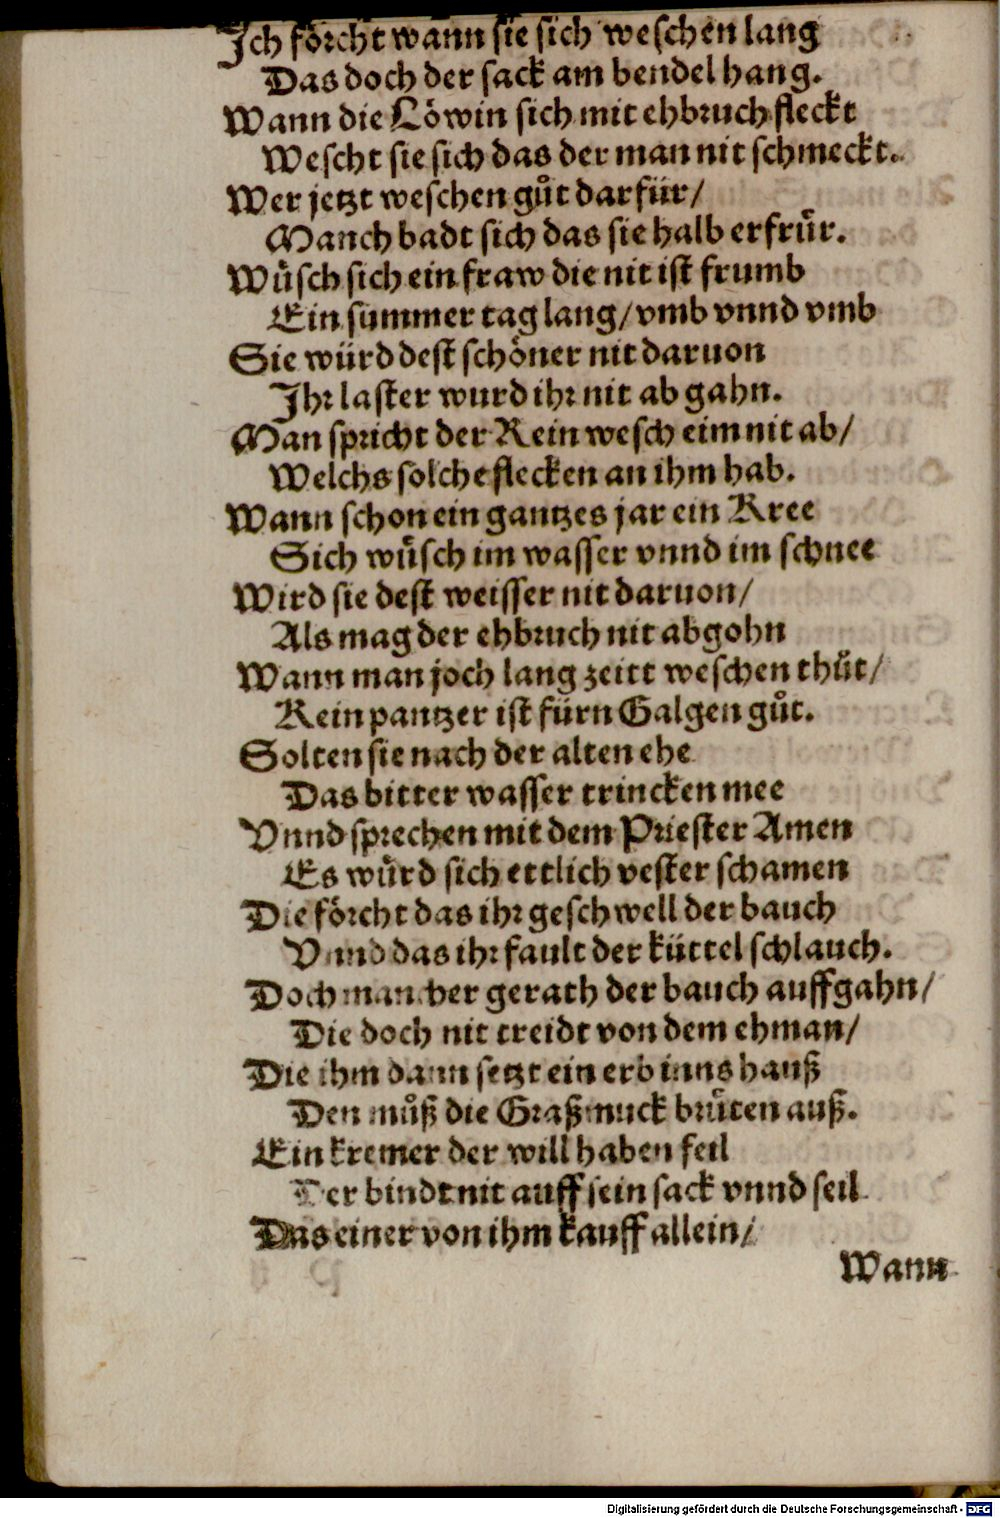 Ich förcht wann sie sich weschen lang
Das doch der sack am bendel hang.
Wann die Löwin sich mit ehbruch fleckt
Wescht sie sich das der man nit schmeckt.
Wer jetzt weschen gůt darfür/
Manch badt sich das sie halb erfrür.
Wüsch sich ein fraw die nit ist frumb
Ein summer tag lang/ vmb vnnd vmb
Sie würd dest schöner nit daruon
Ihr laster wurd ihr nit ab gahn.
Man spricht der Rein wesch eim nit ab/
Welchs solche flecken an ihm hab.
Wann schon ein gantzes jar ein Kree
Sich wüsch im wasser vnnd im schnee
Wird sie dest weisser nit daruon/
Als mag der ehbruch nit abgohn
Wann man joch lang zeitt weschen thůt/
Kein pantzer ist fürn Galgen gůt.
Solten sie nach der alten ehe
Das bitter wasser trincken mee
Vnnd sprechen mit dem Priester Amen
Es würd sich ettlich vester schamen
Die förcht das ihr geschwell der bauch
Vnnd das ihr fault der küttel schlauch.
Doch mancher gerath der bauch auffgahn/
Die doch nit treidt von dem ehman/
Die ihm dann setzt ein erb inns hauß
Den můß die Graßmuck brüten auß.
Ein kremer der will haben feil
Der bindt nit auff sein sack vnnd seil
Das einer von ihm kauff allein/
Wann
Digitalisierung gefördert durch die Deutsche Forschungsgemeinschaft - DFG